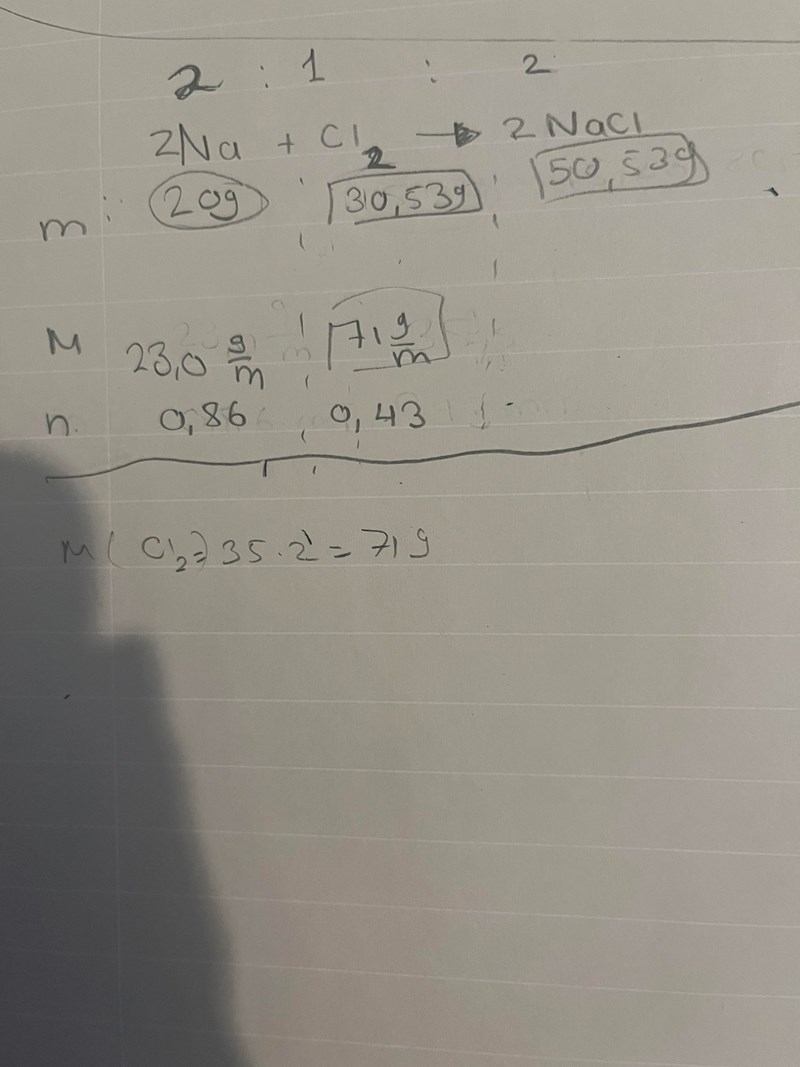 2 : 1 : 2
2Na + Cl₂ → 2NaCl
m : 20g ; 30,53g ; 50,53g
M 23,0 g/m ; 71 g/m
n. 0,86 ; 0,43
M(Cl₂) = 35.2 = 71g